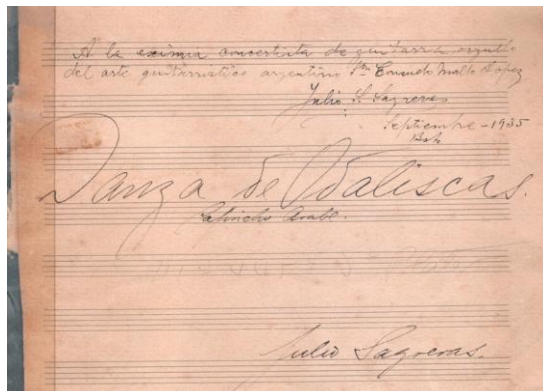 A la eximia concertista de guitarra orgullo
del arte guitarrístico argentino Sta Consuelo Mallo López
Julio S. Sagreras
Septiembre - 1935
Danza de Odaliscas.
Capricho Arabe.
Julio Sagreras.